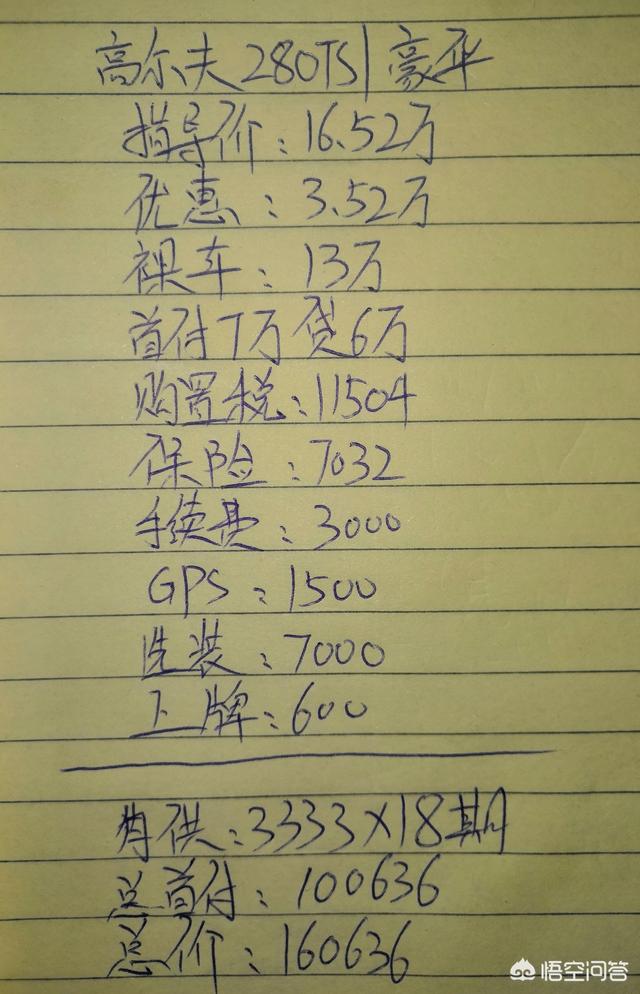 高尔夫280TSI豪华
指导价:16.52万
优惠:3.52万
裸车:13万
首付7万贷6万
购置税:11504
保险:7032
手续费:3000
GPS:1500
选装:7000
上牌:600
月供:3333×18期
总首付:100636
总价:160636
悟空问答